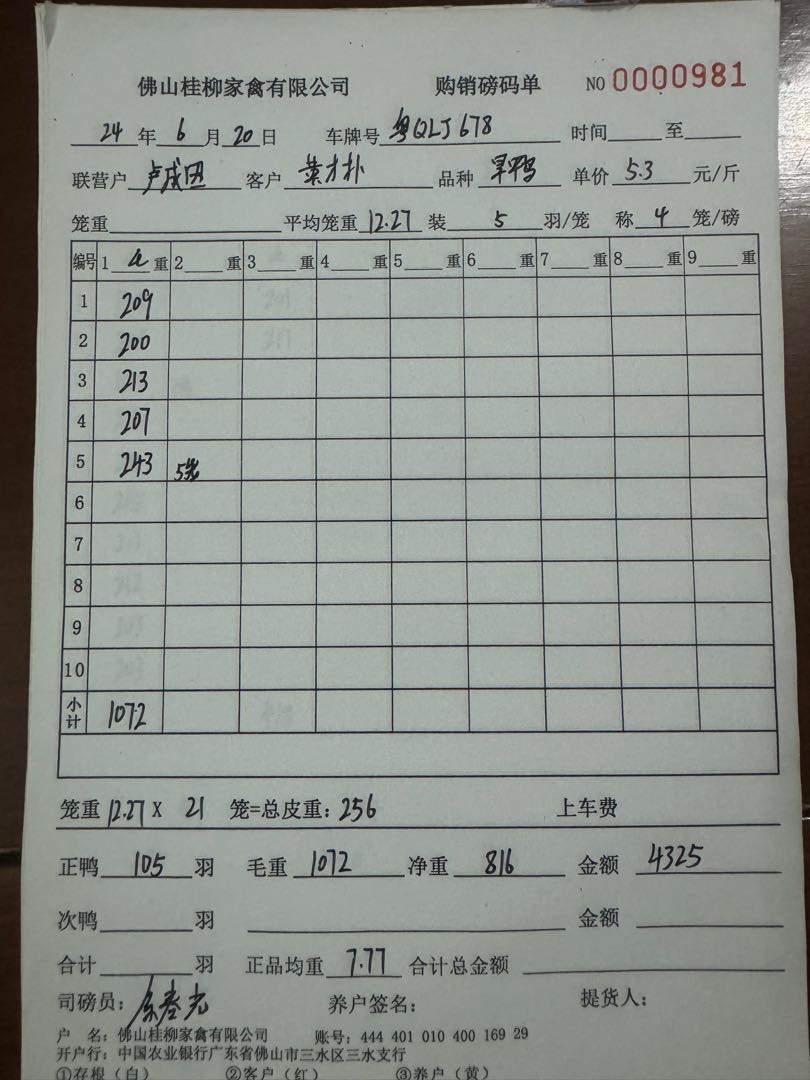 佛山桂柳家禽有限公司 购销磅码单 NO 0000981
24 年 6 月 20 日 车牌号 粤QLJ678 时间 至
联营户 卢成田 客户 黄才扑 品种 旱鸭 单价 5.3 元/斤
笼重 平均笼重 12.27 装 5 羽/笼 称 4 笼/磅
编号 1 重 2 重 3 重 4 重 5 重 6 重 7 重 8 重 9 重
1 209
2 200
3 213
4 207
5 243 5笼
6
7
8
9
10
小计 1072
笼重 12.27 X 21 笼=总皮重: 256 上车费
正鸭 105 羽 毛重 1072 净重 816 金额 4325
次鸭 羽 金额
合计 羽 正品均重 7.77 合计总金额
司磅员: 养户签名: 提货人:
户 名: 佛山桂柳家禽有限公司 账号: 444 401 010 400 169 29
开户行: 中国农业银行广东省佛山市三水区三水支行
①存根（白） ②客户（红） ③养户（黄）